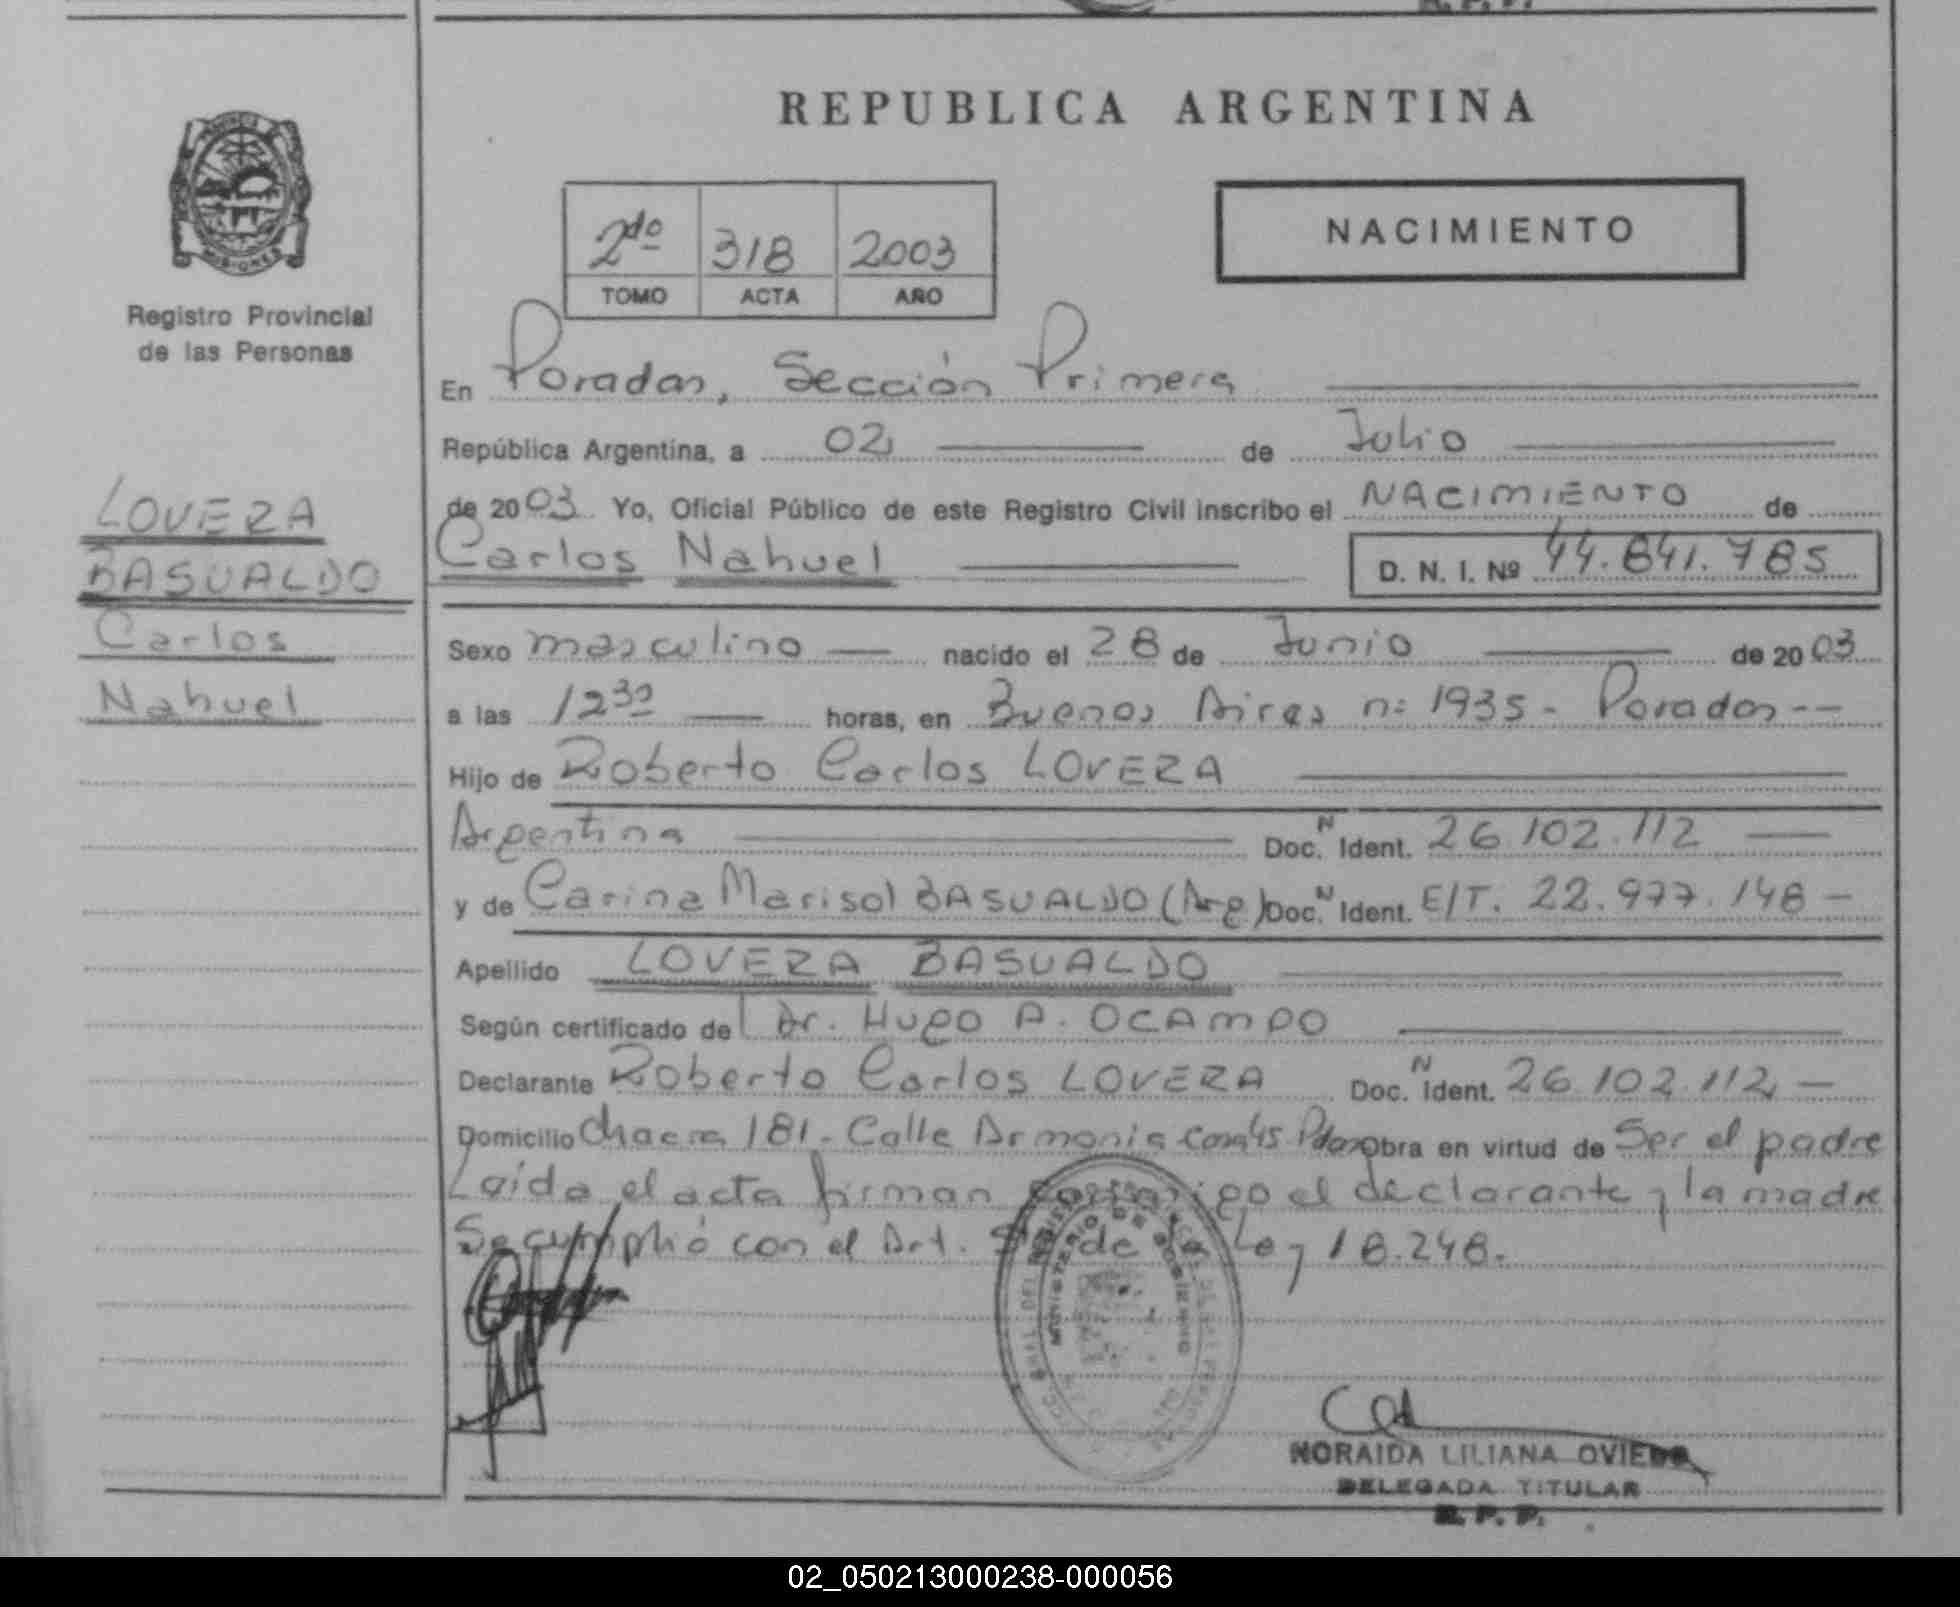 R. P. P.
REPUBLICA ARGENTINA
MISIONES
Registro Provincial
de las Personas
2do 318 2003
TOMO ACTA AÑO
NACIMIENTO
En Posadas, Sección Primera
República Argentina, a 02 de Julio
de 2003 Yo, Oficial Público de este Registro Civil inscribo el NACIMIENTO de
Carlos Nahuel D. N. I. Nº 44.841.785
LOVERA
BASUALDO
Carlos
Nahuel
Sexo masculino nacido el 28 de Junio de 2003
a las 12 30 horas, en Buenos Aires n: 1935 - Posadas --
Hijo de Roberto Carlos LOVERA
Argentina Doc. N Ident. 26.102.112
y de Carina Marisol BASUALDO (Arg) Doc. N Ident. E/T. 22.977.148 -
Apellido LOVERA BASUALDO
Según certificado de Dr. Hugo A. OCAMPO
Declarante Roberto Carlos LOVERA Doc. N Ident. 26.102.112 -
Domicilio Chacra 181 - Calle Armonia casa 45 Pdas Obra en virtud de Ser el padre
Leida el acta firman conmigo el declarante y la madre
Se cumplió con el Art. de la Ley 18.248.
MINISTERIO DE GOBIERNO
NORAIDA LILIANA OVIEDO
DELEGADA TITULAR
R. P. P.
02_050213000238-000056